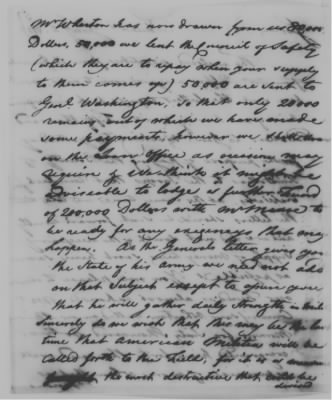 Mr Wharton has now drawn from us 80,000
Dollars, 50,000 we lent the Council of Safety
(which they are to repay when your supply
to them comes up) 50,000 are sent to
Genl Washington, so that only 20000
remains out of which we have made
some payments, however we shall draw
on this Loan Office as occasion may
require & we think it might be
adviseable to lodge a further Fund
of 200,000 Dollars with Mr to
be ready for any exigencys that may
happen. As the Generals letter gives you
the State of his Army we need not add
on that Subject except to assure you
that he will gather daily strength in
Sincerely do we wish that this may be the last
time that American Militia will be
called forth to the Field, for it is
the most destructive that could be
devised